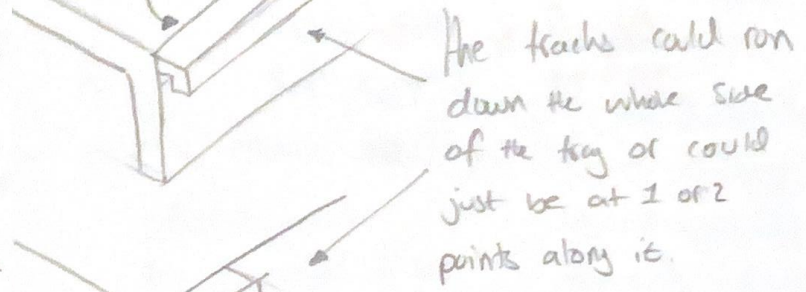 The tracks could run
down the whole side
of the tray or could
just be at 1 or 2
points along it.